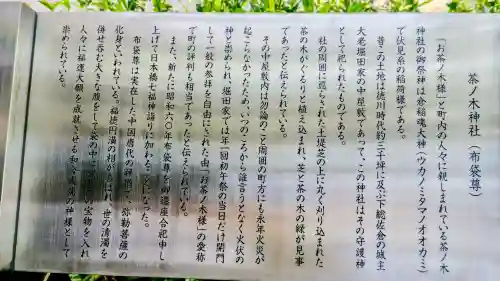 茶ノ木神社(布袋尊)
「お茶ノ木様」と町内の人々に親しまれている茶ノ木
神社の御祭神は倉稲魂大神(ウカノミタマノオオカミ)
で伏見系の稲荷様である。
昔この土地は徳川時代約三千坪に及ぶ下総佐倉の城主
大老堀田家の中屋敷であって、この神社はその守護神
として祀られたものである。
社の周囲に巡らされた土堤芝の上に丸く刈り込まれた
茶の木がぐるりと植え込まれ、芝と茶の木の緑が見事
であったと伝えられている。
その中屋敷内は勿論のこと周囲の町方にも永年火災が
起こらなかったため、いつのころから誰言うとなく火伏の
神と崇められ、堀田家では年一回初午祭の当日だけ開門
して一般の参拝を自由にされた由「お茶ノ木様」の愛称
で町の評判も相当であったと伝えられている。
また、新たに昭和六〇年布袋尊を御遷座合祀申し
上げて日本橋七福神詣りに加わることになった。
布袋尊は実在した中国唐代の禅僧で、弥勒菩薩の
化身といわれている。福徳円満の相が喜ばれ、世の清濁を
併せ呑む大きな腹をして袋の中に沢山の宝物を入れ
人々に福運大願を成就させる和合成実の神様として
崇められている。